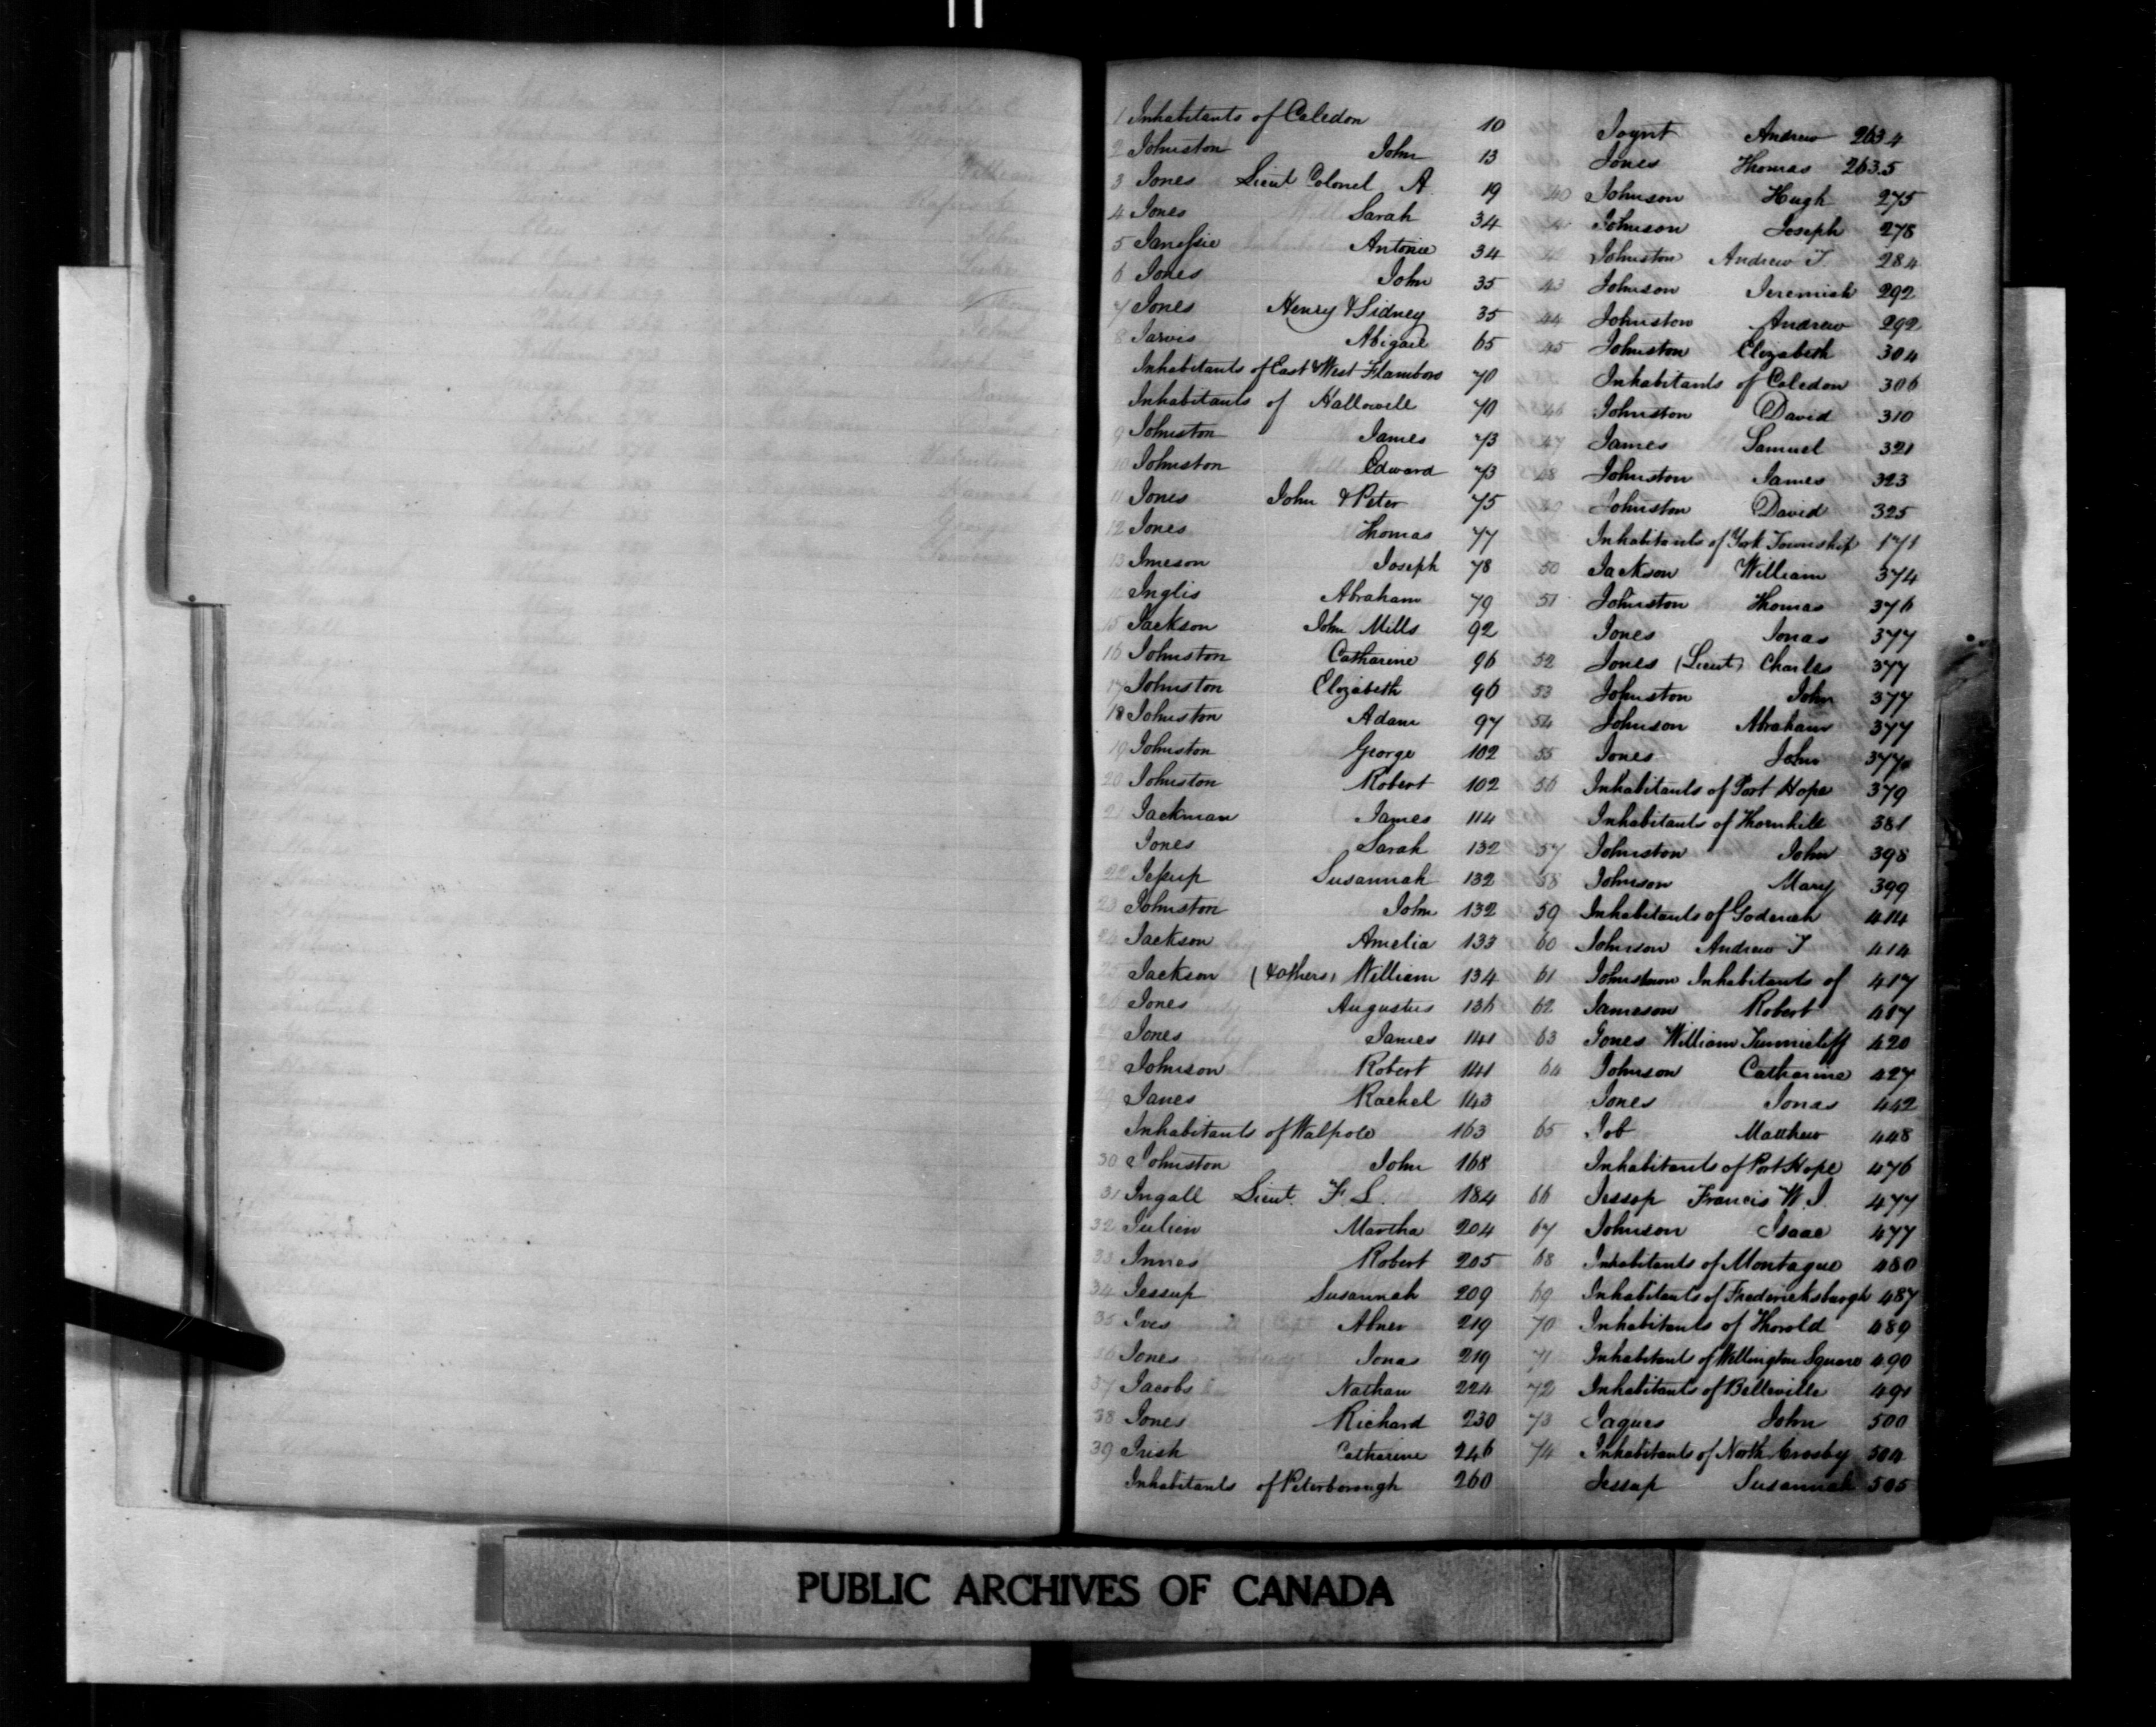 1 Inhabitants of Caledon 10
2 Johnston John 13
3 Jones Lieut Colonel A. 19
4 Jones Sarah 34
5 Janessie Antoine 34
6 Jones John 35
7 Jones Henry & Sidney 35
8 Jarvis Abigail 65
Inhabitants of East & West Flamboro 70
Inhabitants of Hallowell 70
9 Johnston James 73
10 Johnston Edward 73
11 Jones John & Peter 75
12 Jones Thomas 77
13 Imeson Joseph 78
14 Inglis Abraham 79
15 Jackson John Mills 92
16 Johnston Catharine 96
17 Johnston Elizabeth 96
18 Johnston Adam 97
19 Johnston George 102
20 Johnston Robert 102
21 Jackman James 114
Jones Sarah 132
22 Jessup Susannah 132
23 Johnston John 132
24 Jackson Amelia 133
25 Jackson (& others) William 134
26 Jones Augustus 136
27 Jones James 141
28 Johnson Robert 141
29 Janes Rachel 143
Inhabitants of Walpole 163
30 Johnston John 168
31 Ingall Lieut. F. L. 184
32 Julien Martha 204
33 Innes Robert 205
34 Jessup Susannah 209
35 Ives Abner 219
36 Jones Jonas 219
37 Jacobs Nathan 224
38 Jones Richard 230
39 Irish Catharine 246
Inhabitants of Peterborough 260
Joynt Andrew 263.4
Jones Thomas 263.5
40 Johnson Hugh 275
41 Johnson Joseph 278
42 Johnston Andrew T. 284
43 Johnson Jeremiah 292
44 Johnston Andrew 292
45 Johnston Elizabeth 304
Inhabitants of Caledon 306
46 Johnston David 310
47 James Samuel 321
48 Johnston James 323
49 Johnston David 325
Inhabitants of York Township 171
50 Jackson William 374
51 Johnston Thomas 376
Jones Jonas 377
52 Jones (Lieut) Charles 377
53 Johnston John 377
54 Johnson Abraham 377
55 Jones John 377
56 Inhabitants of Port Hope 379
Inhabitants of Thornhill 381
57 Johnston John 398
58 Johnson Mary 399
59 Inhabitants of Goderich 414
60 Johnson Andrew T 414
61 Johnstown Inhabitants of 417
62 Jameson Robert 417
63 Jones William Tunnicliff 420
64 Johnson Catharine 427
Jones Jonas 442
65 Job Matthew 448
Inhabitants of Port Hope 476
66 Jessop Francis W. J. 477
67 Johnson Isaac 477
68 Inhabitants of Montague 480
69 Inhabitants of Fredericksburgh 487
70 Inhabitants of Thorold 489
71 Inhabitants of Wellington Square 490
72 Inhabitants of Belleville 491
73 Jaques John 500
74 Inhabitants of North Crosby 504
Jessup Susannah 505
PUBLIC ARCHIVES OF CANADA